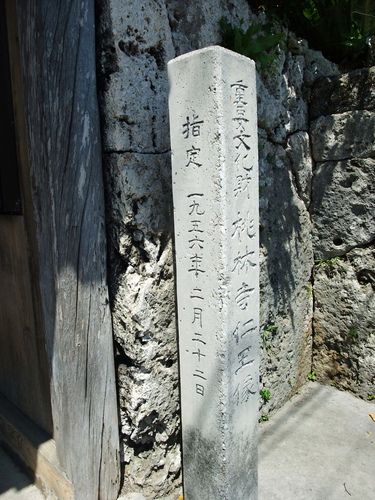 重要文化財 桃林寺仁王像
指定 一九五六年二月二十二日